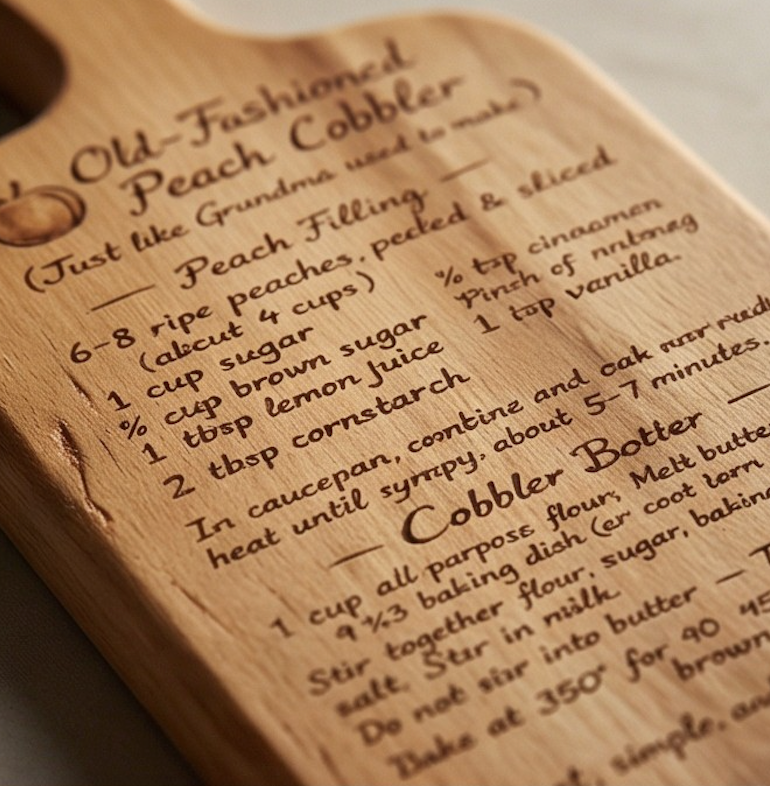 Old-Fashioned
Peach Cobbler
(Just like Grandma used to make)
— Peach Filling —
6-8 ripe peaches, peeted & sliced
(about 4 cups)
1 cup sugar
% cup brown sugar
1 tbsp lemon juice
2 tbsp cornstarch
% tsp cinaamen
Pinch of nntmag
1 tsp vanilla.
In caucepan, comtine and cak
heat until syrrpy, about 5-7 minutes.
— Cobbler Botter —
1 cup all parpose flour; Melt butte
9 %3 baking dish (er coot lorn
Stir together flour, sugar, baking
salt. Stir in milk
Do not sir into butter —
Bake at 350° for 40 45
brown
simple, and